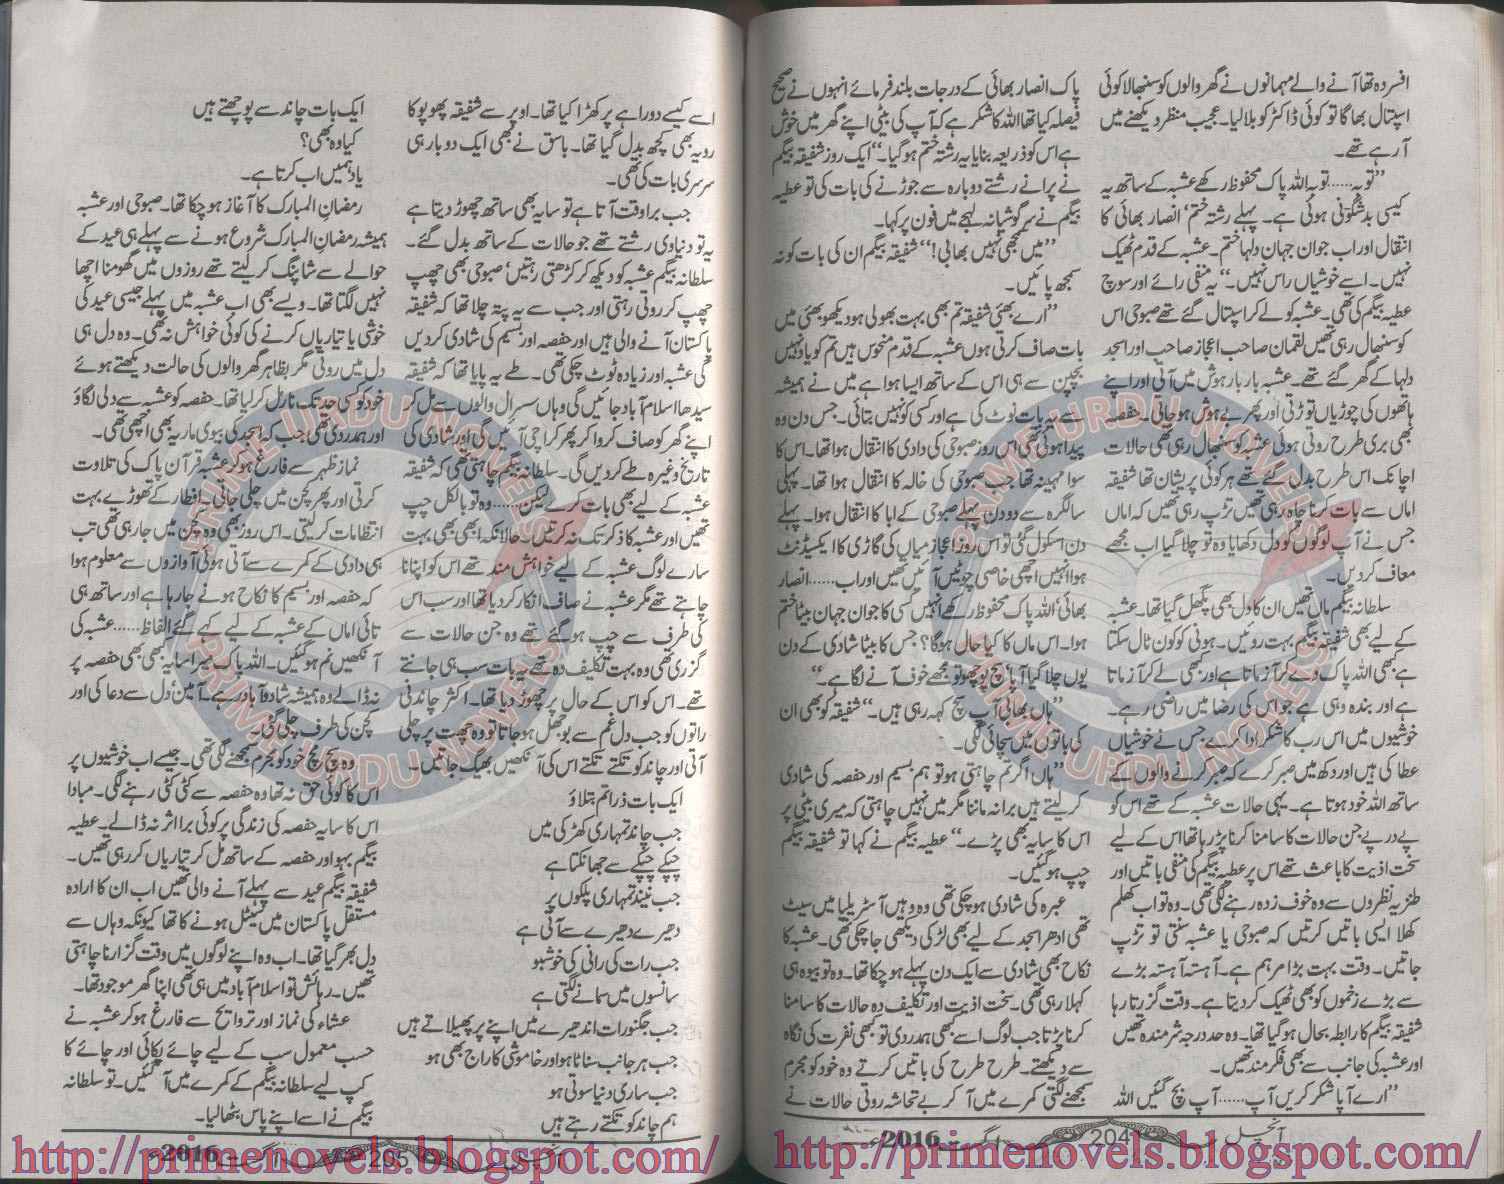 افسردہ تھا آنے والے مہمانوں نے گھر والوں کو سنبھالا کوئی
اسپتال بھاگا تو کوئی ڈاکٹر کو بلا لیا۔ عجیب منظر دیکھنے میں
آ رہے تھے۔
”توبہ......توبہ اللہ پاک محفوظ رکھے عشبہ کے ساتھ یہ
کیسی بدشگونی ہوئی ہے۔ پہلے رشتہ ختم‘ انصار بھائی کا
انتقال اور اب جوان جہان دولہا ختم۔ عشبہ کے قدم ٹھیک
نہیں۔ اسے خوشیاں راس نہیں۔“ یہ منفی رائے اور سوچ
عطیہ بیگم کی تھی۔ عشبہ کو لے کر اسپتال گئے تھے صبوحی اس
کو سنبھال رہی تھیں لقمان صاحب اعجاز صاحب اور اسجد
دلہا کے گھر گئے تھے۔ عشبہ بار بار ہوش میں آتی اور اپنے
ہاتھوں کی چوڑیاں توڑتی اور پھر بے ہوش ہو جاتی۔ حفصہ
بھی بری طرح روتی ہوئی عشبہ کو سنبھال رہی تھی حالات
اچانک اس طرح بدل گئے تھے ہر کوئی پریشان تھا شفیقہ
اماں سے بات کرنا چاہ رہی تھیں تڑپ رہی تھیں کہ اماں
جس نے آپ لوگوں کو دل دکھایا وہ تو چلا گیا اب مجھے
معاف کر دیں۔
سلطانہ بیگم ماں تھیں ان کا دل بھی پگھل گیا تھا۔ عشبہ
کے لیے بھی شفیقہ بیگم بہت روئیں۔ ہونی کو کون ٹال سکتا
ہے بھی اللہ پاک دے کر آزماتا ہے اور کبھی لے کر آزماتا
ہے اور بندہ وہی ہے جو اس کی رضا میں راضی رہے۔
خوشیوں میں اس رب کا شکر ادا کرے جس نے خوشیاں
عطا کی ہیں اور دکھ میں صبر کرے کہ صبر کرنے والوں کے
ساتھ اللہ خود ہوتا ہے۔ یہی حالات عشبہ کے تھے اس کو
پے در پے جن حالات کا سامنا کرنا پڑ رہا تھا اس کے لیے
سخت اذیت کا باعث تھے اس پر عطیہ بیگم کی منفی باتیں اور
طنزیہ نظروں سے وہ خوف زدہ رہنے لگی تھی۔ وہ تو اب کھلم
کھلا ایسی باتیں کرتیں کہ صبوحی یا عشبہ سنتی تو تڑپ
جاتیں۔ وقت بہت بڑا مرہم ہے۔ آہستہ آہستہ بڑے
سے بڑے زخموں کو بھی ٹھیک کر دیتا ہے۔ وقت گزرتا رہا
شفیقہ بیگم کا رابطہ بحال ہو گیا تھا۔ وہ حد درجہ شرمندہ تھیں
اور عشبہ کی جانب سے بھی فکر مند تھیں۔
”ارے آپا شکر کریں آپ......آپ بچ گئیں اللہ
پاک انصار بھائی کے درجات بلند فرمائے انہوں نے صحیح
فیصلہ کیا تھا اللہ کا شکر ہے کہ آپ کی بیٹی اپنے گھر میں خوش
ہے اس کو ذریعہ بنایا یہ رشتہ ختم ہو گیا۔“ ایک روز شفیقہ بیگم
نے پرانے رشتے دوبارہ سے جوڑنے کی بات کی تو عطیہ
بیگم نے سرگوشیانہ لہجے میں فون پر کہا۔
”میں سمجھی نہیں بھابی!“ شفیقہ بیگم ان کی بات کو نہ
سمجھ پائیں۔
”ارے بھئی شفیقہ تم بھی بہت بھولی ہو دیکھو بھئی میں
بات صاف کرتی ہوں عشبہ کے قدم منحوس ہیں تم کو یاد نہیں
بچپن سے ہی اس کے ساتھ ایسا ہوا ہے میں نے ہمیشہ
سے ہر بات نوٹ کی ہے اور کسی کو نہیں بتائی۔ جس دن وہ
پیدا ہوئی تھی اس روز صبوحی کی دادی کا انتقال ہوا تھا۔ اس کا
سوا مہینہ تھا جب صبوحی کی خالہ کا انتقال ہوا تھا۔ پہلی
سالگرہ سے دو دن پہلے صبوحی کے ابا کا انتقال ہوا۔ پہلے
دن اسکول گئی تو اس روز اعجاز میاں کی گاڑی کا ایکسیڈنٹ
ہوا انہیں اچھی خاصی چوٹیں آئیں تھیں اور اب......انصار
بھائی‘ اللہ پاک محفوظ رکھے انہیں کسی کا جوان جہان بیٹا ختم
ہوا۔ اس ماں کا کیا حال ہوگا؟ جس کا بیٹا شادی کے دن
یوں چلا گیا آپا سچ پوچھو تو مجھے خوف آنے لگا ہے۔“
”ہاں بھابی آپ سچ کہہ رہی ہیں۔“ شفیقہ کو بھی ان
کی باتوں میں سچائی لگی۔
”ہاں اگر تم چاہتی ہو تو ہم بسیم اور حفصہ کی شادی
کر لیتے ہیں برا نہ ماننا مگر میں نہیں چاہتی کہ میری بیٹی پر
اس کا سایہ بھی پڑے۔“ عطیہ بیگم نے کہا تو شفیقہ بیگم
چپ ہو گئیں۔
عبرہ کی شادی ہو چکی تھی وہ وہیں آسٹریلیا میں سیٹ
تھی ادھر اسجد کے لیے بھی لڑکی دیکھی جا چکی تھی۔ عشبہ کا
نکاح بھی شادی سے ایک دن پہلے ہو چکا تھا۔ وہ تو بیوہ ہی
کہلا رہی تھی۔ سخت اذیت اور تکلیف دہ حالات کا سامنا
کرنا پڑتا جب لوگ اسے بھی ہمدردی تو کبھی نفرت کی نگاہ
سے دیکھتے۔ طرح طرح کی باتیں کرتے وہ خود کو مجرم
سمجھنے لگتی کمرے میں آ کر بے تحاشہ روتی حالات نے
آنچل 204 اگست 2016ء
اسے کیسے دوراہے پر کھڑا کیا تھا۔ اوپر سے شفیقہ پھوپو کا
رویہ بھی کچھ بدل گیا تھا۔ باسق نے بھی ایک دو بار ہی
سرسری بات کی تھی۔
جب برا وقت آتا ہے تو سایہ بھی ساتھ چھوڑ دیتا ہے
یہ تو دنیاوی رشتے تھے جو حالات کے ساتھ بدل گئے۔
سلطانہ بیگم عشبہ کو دیکھ کر کڑھتی رہتیں‘ صبوحی بھی چھپ
چھپ کر روتی رہتی اور جب سے یہ پتہ چلا تھا کہ شفیقہ
پاکستان آنے والی ہیں اور حفصہ اور بسیم کی شادی کر دیں
گی عشبہ اور زیادہ ٹوٹ چکی تھی۔ طے یہ پایا تھا کہ شفیقہ
سیدھا اسلام آباد جائیں گی وہاں سسرال والوں سے مل کر
اپنے گھر کو صاف کروا کر پھر کراچی آئیں گی اور شادی کی
تاریخ وغیرہ طے کر دیں گی۔ سلطانہ بیگم چاہتی تھی کہ شفیقہ
عشبہ کے لیے بھی بات کرے لیکن......وہ تو بالکل چپ
تھیں اور عشبہ کا ذکر تک نہ کرتیں۔ حالانکہ ابھی بھی بہت
سارے لوگ عشبہ کے لیے خواہش مند تھے اس کو اپنانا
چاہتے تھے مگر عشبہ نے صاف انکار کر دیا تھا اور سب اس
کی طرف سے چپ ہو گئے تھے وہ جن حالات سے
گزری تھی وہ بہت تکلیف دہ تھے یہ بات سب ہی جانتے
تھے۔ اس کو اس کے حال پر چھوڑ دیا تھا۔ اکثر چاندنی
راتوں کو جب دل غم سے بوجھل ہو جاتا تو وہ چھت پر چلی
آتی اور چاند کو تکتے تکتے اس کی آنکھیں بھیگ جاتیں۔
ایک بات ذرا تم بتلاؤ
جب چاند تمہاری کھڑکی میں
چپکے چپکے سے جھانکتا ہے
جب نیند تمہاری پلکوں پر
دھیرے دھیرے سے آتی ہے
جب رات کی رانی کی خوشبو
سانسوں میں سمانے لگتی ہے
جب جگنو رات اندھیرے میں اپنے پر پھیلاتے ہیں
جب ہر جانب سناٹا ہو اور خاموشی کا راج بھی ہو
جب ساری دنیا سوتی ہو
ہم چاند کو تکتے رہتے ہیں
ایک بات چاند سے پوچھتے ہیں
کیا وہ بھی؟
یاد ہمیں اب کرتا ہے۔
رمضان المبارک کا آغاز ہو چکا تھا۔ صبوحی اور عشبہ
ہمیشہ رمضان المبارک شروع ہونے سے پہلے ہی عید کے
حوالے سے شاپنگ کر لیتے تھے روزوں میں گھومنا اچھا
نہیں لگتا تھا۔ ویسے بھی اب عشبہ میں پہلے جیسی عید کی
خوشی یا تیاریاں کرنے کی کوئی خواہش نہ تھی۔ وہ دل ہی
دل میں روتی مگر بظاہر گھر والوں کی حالت دیکھتے ہوئے
خود کو کسی حد تک نارمل کر لیا تھا۔ حفصہ کو عشبہ سے دلی لگاؤ
اور ہمدردی تھی جب کہ اسجد کی بیوی ماریہ بھی اچھی تھی۔
نماز ظہر سے فارغ ہو کر عشبہ قرآن پاک کی تلاوت
کرتی اور پھر کچن میں چلی جاتی۔ افطار کے تھوڑے بہت
انتظامات کر لیتی۔ اس روز بھی وہ کچن میں جا رہی تھی تب
ہی دادی کے کمرے سے آتی ہوئی آوازوں سے معلوم ہوا
کہ حفصہ اور بسیم کا نکاح ہونے جا رہا ہے اور ساتھ ہی
تائی اماں کے عشبہ کے لیے کہے گئے الفاظ......عشبہ کی
آنکھیں نم ہو گئیں۔ اللہ پاک میرا سایہ بھی بھی حفصہ پر
نہ ڈالے وہ ہمیشہ شاد و آباد رہے۔ آمین‘ دل سے دعا کی اور
کچن کی طرف چلی گئی۔
وہ سچ مچ خود کو مجرم سمجھنے لگی تھی۔ جیسے اب خوشیوں پر
اس کا کوئی حق نہ تھا وہ حفصہ سے کٹی کٹی رہنے لگی۔ مبادا
اس کا سایہ حفصہ کی زندگی پر کوئی برا اثر نہ ڈالے۔ عطیہ
بیگم بہو اور حفصہ کے ساتھ مل کر تیاریاں کر رہی تھیں۔
شفیقہ بیگم عید سے پہلے آنے والی تھیں اب ان کا ارادہ
مستقل پاکستان میں سیٹل ہونے کا تھا کیونکہ وہاں سے
دل بھر گیا تھا۔ اب وہ اپنے لوگوں میں وقت گزارنا چاہتی
تھیں۔ رہائش تو اسلام آباد میں ہی تھی اپنا گھر موجود تھا۔
عشاء کی نماز اور تراویح سے فارغ ہو کر عشبہ نے
حسب معمول سب کے لیے چائے پکائی اور چائے کا
کپ لیے سلطانہ بیگم کے کمرے میں آ گئیں۔ تو سلطانہ
بیگم نے اسے اپنے پاس بٹھا لیا۔
آنچل 205 اگست 2016ء
PRIME URDU NOVELS
PRIME URDU NOVELS
PRIME URDU NOVELS
PRIME URDU NOVELS
http://primenovels.blogspot.com/
http://primenovels.blogspot.com/